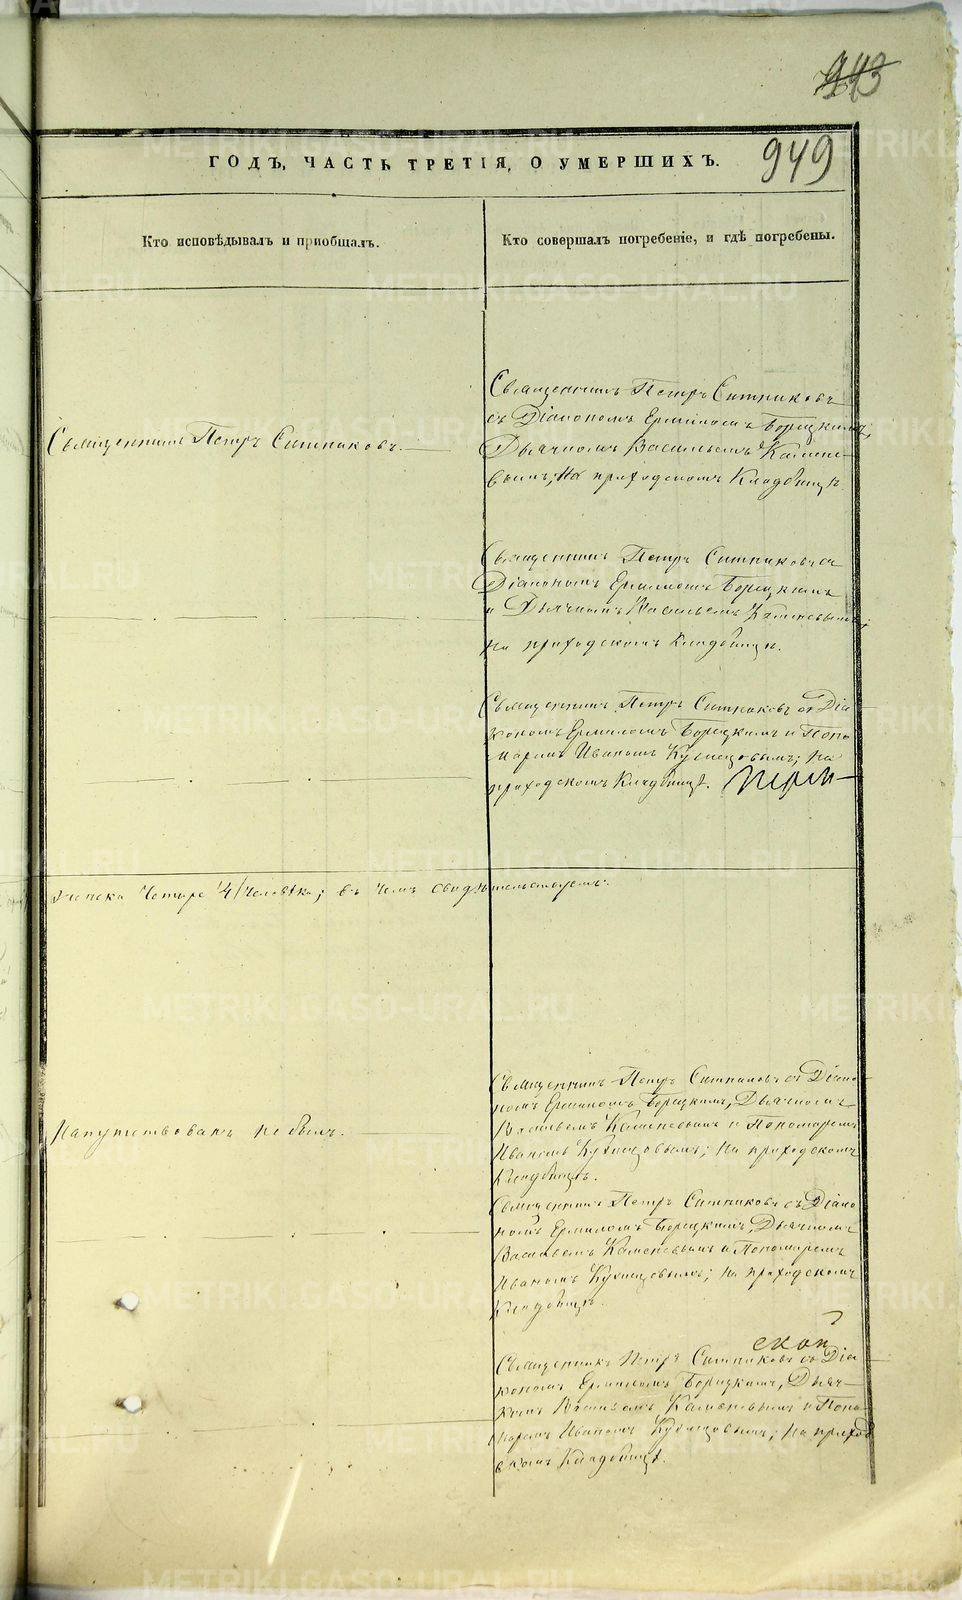 943
949
ГОДЪ, ЧАСТЬ ТРЕТІЯ, О УМЕРШИХЪ.
Кто исповѣдывалъ и приобщалъ.
Кто совершалъ погребеніе, и гдѣ погребены.
Священникъ Петръ Ситниковъ.
Священникъ Петръ Ситниковъ
съ Діакономъ Ермиломъ Борецкимъ,
Дьячкомъ Васильемъ Камене-
вымъ; На приходскомъ Кладбищѣ.
Священникъ Петръ Ситниковъ съ
Діакономъ Ермиломъ Борецкимъ
и Дьячкомъ Васильемъ Каменевымъ;
на приходскомъ Кладбищѣ.
Священникъ Петръ Ситниковъ съ Діа-
кономъ Ермиломъ Борецкимъ и Поно-
маремъ Иваномъ Кузнецовымъ; на
приходскомъ Кладбищѣ.
пола Четыре /4/ человѣка; въ чемъ свидѣтельствуемъ:
Напутствованъ не былъ.
Священникъ Петръ Ситниковъ съ Діако-
номъ Ермиломъ Борецкимъ, Дьячкомъ
Васильемъ Каменевымъ и Пономаремъ
Иваномъ Кузнецовымъ; на приходскомъ
Кладбищѣ.
Священникъ Петръ Ситниковъ съ Діако-
номъ Ермиломъ Борецкимъ, Дьячкомъ
Васильемъ Каменевымъ и Пономаремъ
Иваномъ Кузнецовымъ; на приходскомъ
Кладбищѣ.
Священникъ Петръ Ситниковъ съ Діа-
кономъ Ермиломъ Борецкимъ, Дьяч-
комъ Васильемъ Каменевымъ и Поно-
маремъ Иваномъ Кузнецовымъ; на приход-
скомъ Кладбищѣ.
METRIKI.GASO-URAL.RU